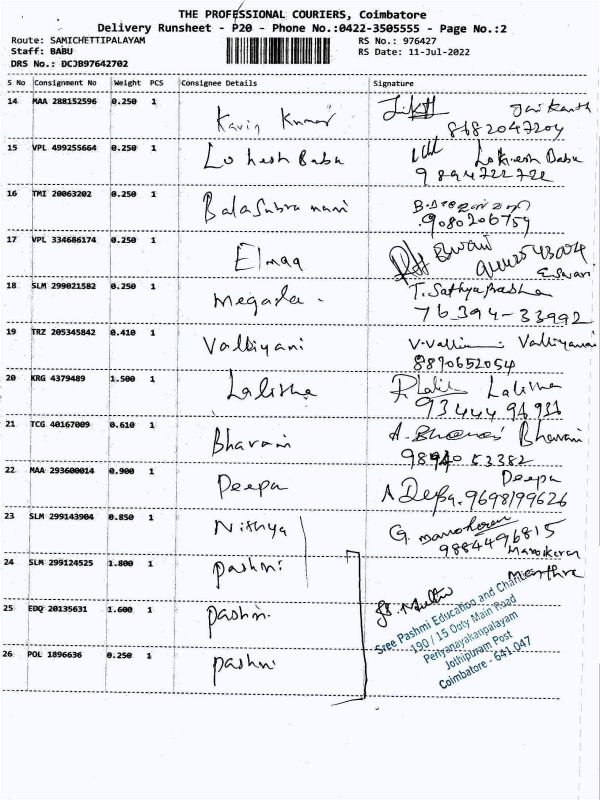 THE PROFESSIONAL COURIERS, Coimbatore
Delivery Runsheet - P20 - Phone No.:0422-3505555 - Page No.:2
Route: SAMICHETTIPALAYAM RS No.: 976427
Staff: BABU RS Date: 11-Jul-2022
DRS No.: DCJB97642702
S No Consignment No Weight PCS Consignee Details Signature
14 MAA 288152596 0.250 1 Kavin Kumar Jaikanth
8682047204
15 VPL 499255664 0.250 1 Lokesh Babu Lokesh Babu
9894722722
16 TMI 20063202 0.250 1 Balasubramani
9080206759
17 VPL 334686174 0.250 1 Elmaq Eswari
Eswari
18 SLM 299021582 0.250 1 Megala T. Sathyaprabha
76394-33992
19 TRZ 205345842 0.410 1 Valliyani V. Valli
8870652054
20 KRG 4379489 1.500 1 Lalisha Lalisha
21 TCG 40167009 0.610 1 Bharani A. Bharani Bharani
98940 53382
22 MAA 293600014 0.900 1 Deepa Deepa
Deepa. 9698199626
23 SLM 299143904 0.850 1 Nithya G. Manoharan
9884496815
24 SLM 299124525 1.800 1 pashmi
25 EDQ 20135631 1.600 1 pashmi
26 POL 1896636 0.250 1 pashmi
Sree Pashmi Education and Charit
190 / 15 Ooty Main Road
Periyanayakanpalayam
Jothipuram Post
Coimbatore - 641 047